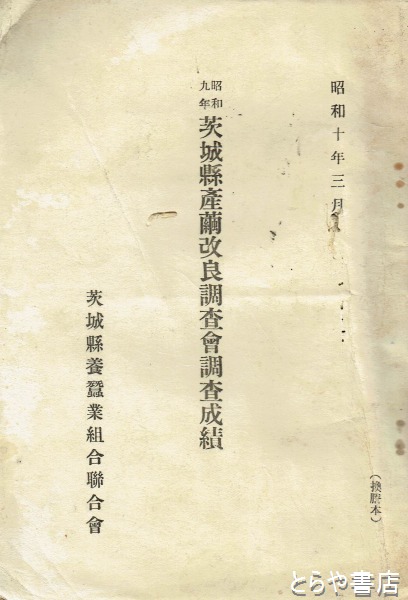 昭和十年三月
昭和九年 茨城縣產繭改良調查會調查成績
茨城縣養蠶業組合聯合會
(換謄本)
とらや書店